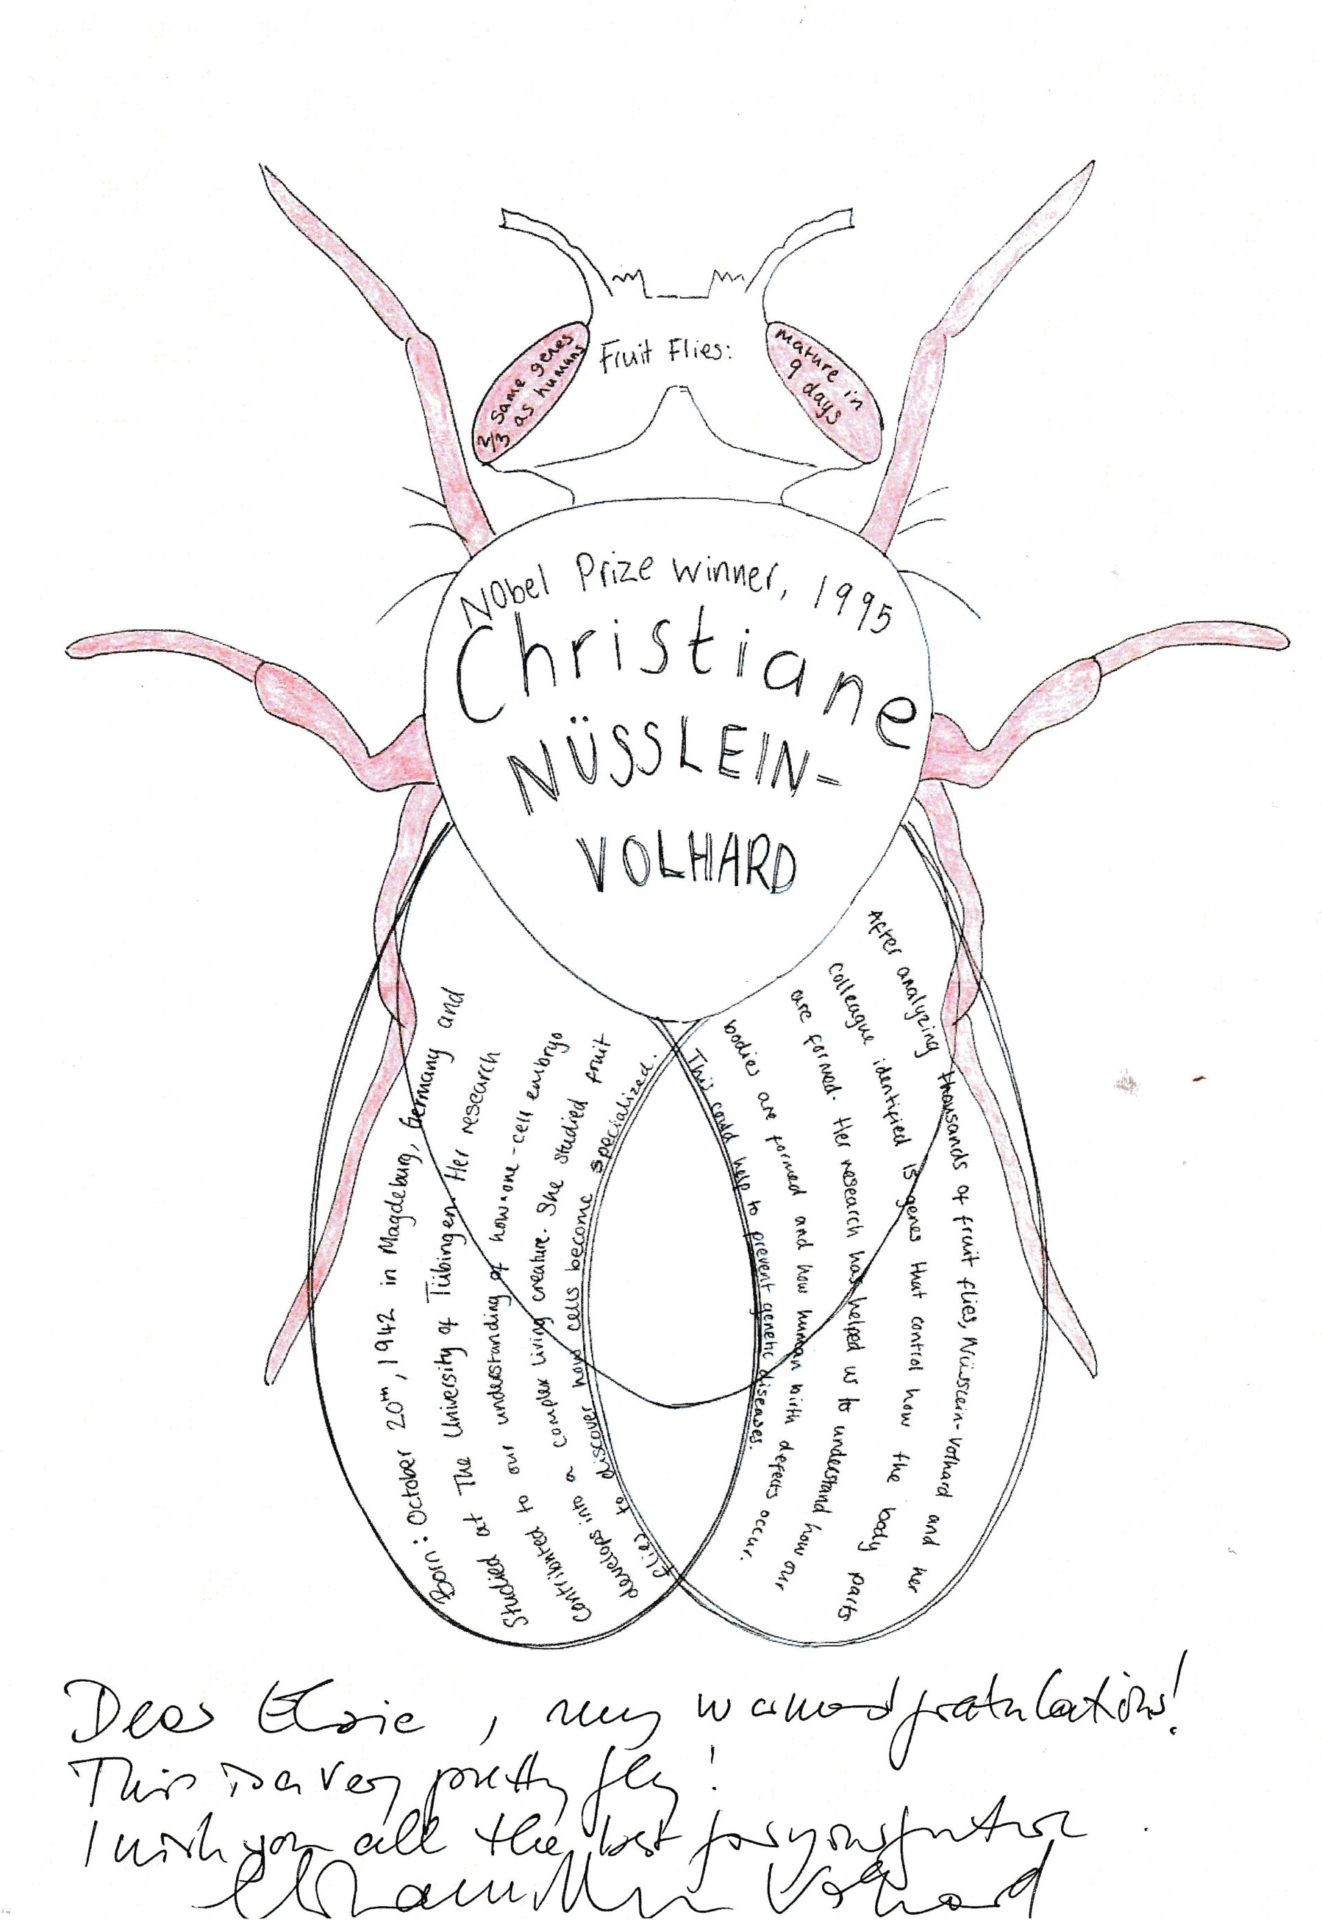 2/3 same genes
as humans
Fruit Flies:
Mature in
9 days
Nobel Prize winner, 1995
Christiane
NÜSSLEIN-
VOLHARD
Born: October 20th, 1942 in Magdeburg, Germany and
Studied at The University of Tübingen. Her research
contributed to our understanding of how a one-cell embryo
develops into a complex living creature. She studied fruit
flies to discover how cells become specialized.
After analyzing thousands of fruit flies, Nüsslein-Volhard and her
colleague identified 15 genes that control how the body parts
are formed. Her research has helped us to understand how our
bodies are formed and how human birth defects occur.
This could help to prevent genetic diseases.
Dear Elsie, my congratulations!
This is a very pretty fly!
I wish you all the best for your future.
Christiane Nüsslein-Volhard